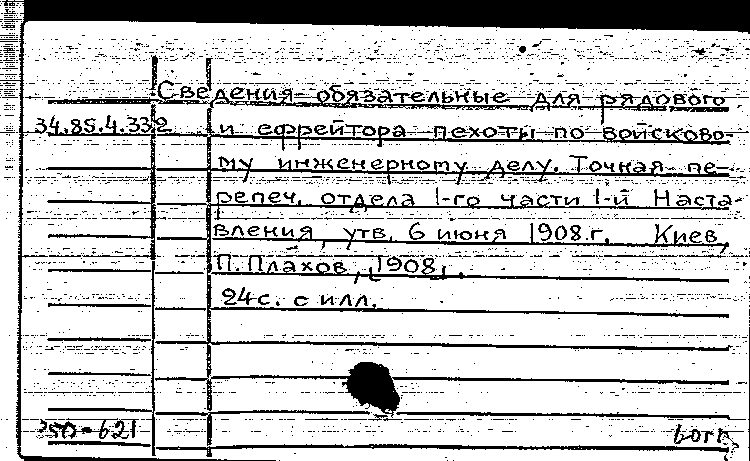 Сведения обязательные для рядового
34.85.4.332 и ефрейтора пехоты по войсково-
му инженерному делу. Точная пе-
репеч. отдела 1-го части 1-й Наста-
вления, утв. 6 июня 1908.г. Киев,
П. Плахов, [1908].
24с. с илл.
350-621